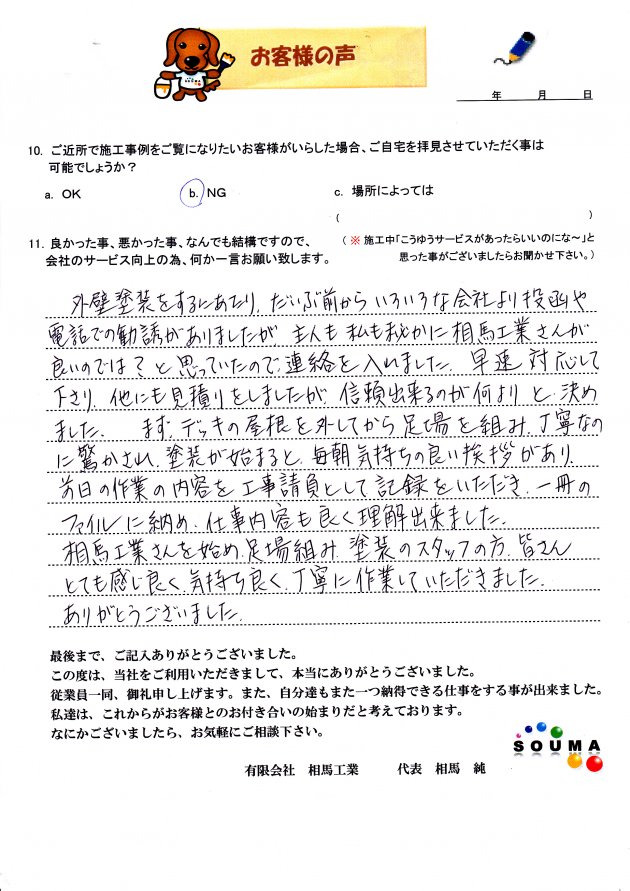 お客様の声
年 月 日
10. ご近所で施工事例をご覧になりたいお客様がいらした場合、ご自宅を拝見させていただく事は
可能でしょうか？
a. OK b. NG c. 場所によっては
( )
11. 良かった事、悪かった事、なんでも結構ですので、 （ ※ 施工中「こうゆうサービスがあったらいいのにな～」と
会社のサービス向上の為、何か一言お願い致します。 思った事がございましたらお聞かせ下さい。）
外壁塗装をするにあたり、だいぶ前からいろいろな会社より投函や
電話での勧誘がありましたが 主人も私も秘かに相馬工業さんが
良いのでは？と思っていたので、連絡を入れました。早速 対応して
下さり、他にも見積りをしましたが、信頼出来るのが何よりと、決め
ました。 まず、デッキの屋根を外してから足場を組み、丁寧なの
に驚かされ、塗装が始まると、毎朝気持ちの良い挨拶があり、
前日の作業の内容を工事請負として記録をいただき、一冊の
ファイルに納め、仕事内容も良く理解出来ました。
相馬工業さんを始め、足場組み、塗装のスタッフの方、皆さん
とても感じ良く、気持ち良く、丁寧に作業していただきました。
ありがとうございました。
最後まで、ご記入ありがとうございました。
この度は、当社をご利用いただきまして、本当にありがとうございました。
従業員一同、御礼申し上げます。また、自分達もまた一つ納得できる仕事をする事が出来ました。
私達は、これからがお客様とのお付き合いの始まりだと考えております。
なにかございましたら、お気軽にご相談下さい。
SOUMA
有限会社 相馬工業 代表 相馬 純